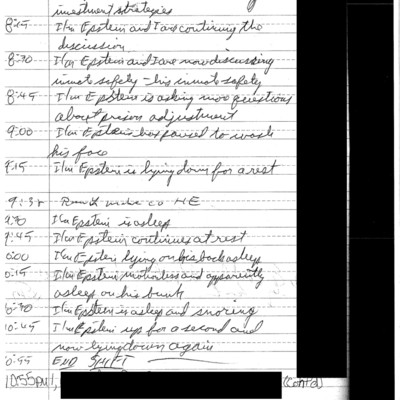 investment strategies
8:15 I/m Epstein and I are continuing the
discussion
8:30 I/m Epstein and I are now discussing
inmate safety - his inmate safety
8:45 I/m Epstein is asking more questions
about prison adjustment
9:00 I/m Epstein has paused to wash
his face
9:15 I/m Epstein is lying down for a rest
9:3
9:30 I/m Epstein is asleep
9:45 I/m Epstein continues at rest
0:00 I/m Epstein lying on his back asleep
0:15 I/m Epstein motionless and apparently
asleep on his bunk
0:30 I/m Epstein is asleep and snoring
0:45 I/m Epstein up for a second and
now lying down again
0:55 END SHIFT
10:55pm, (Cont'd)